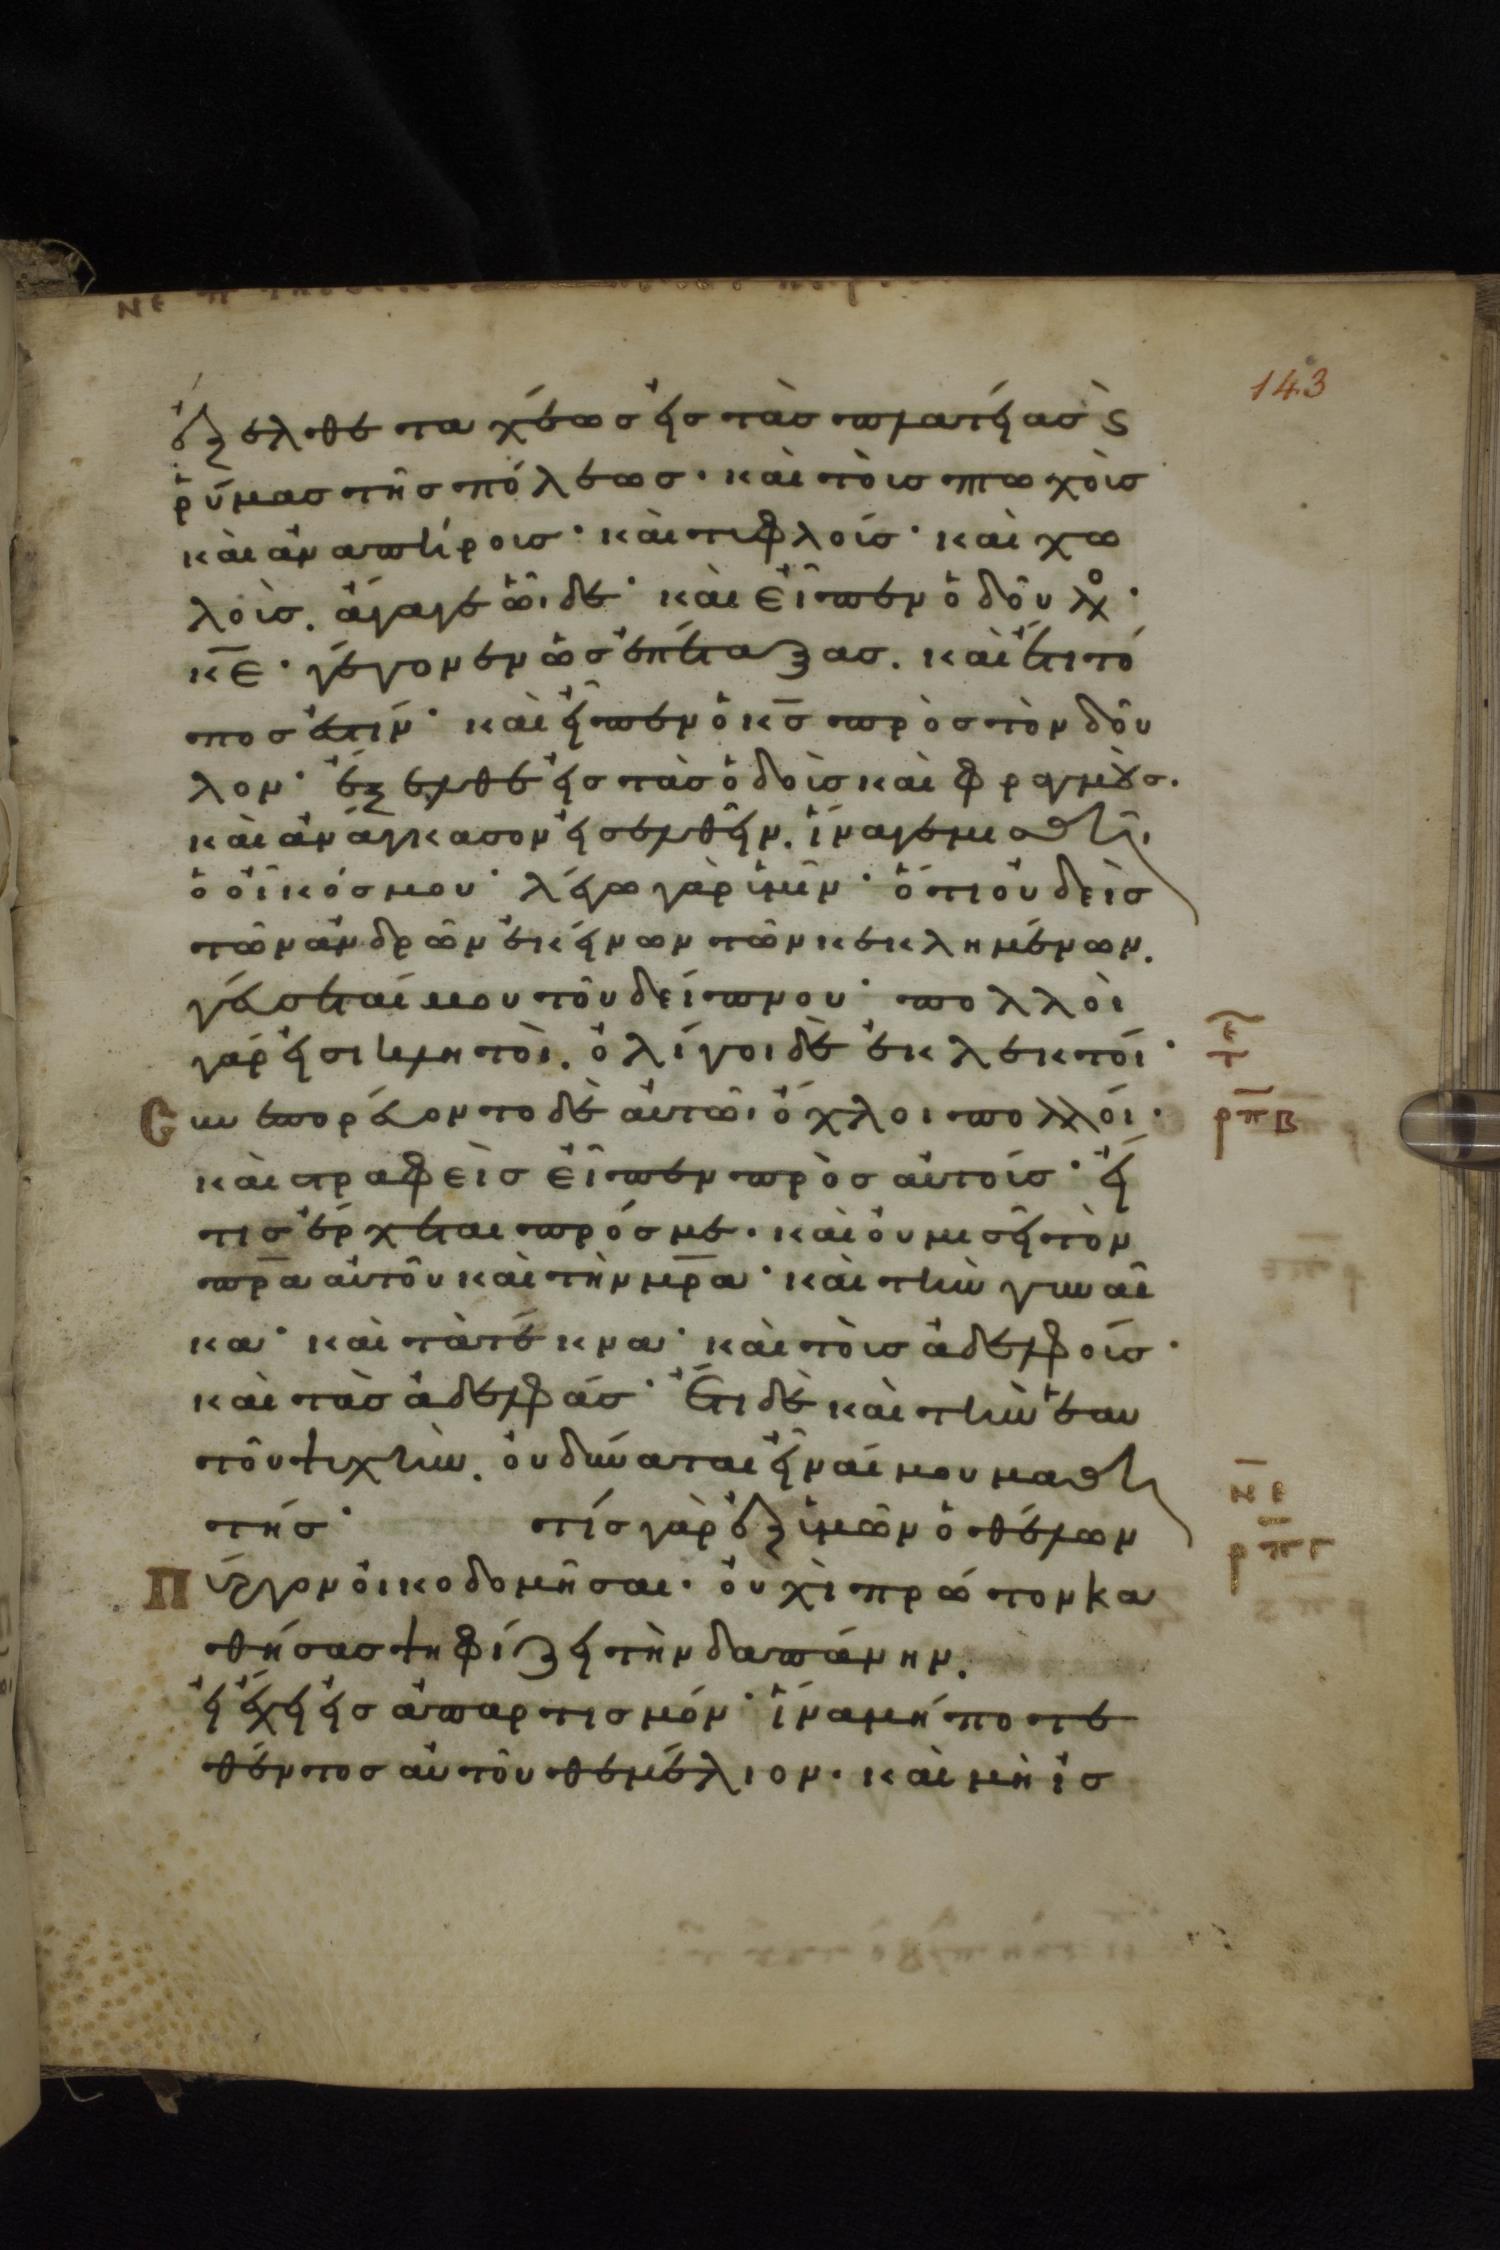 143
ἔξελθε ταχέως εἰς τὰς πλατείας ϛ
ῥύμας τῆς πόλεως· καὶ τοὺς πτωχοὺς
καὶ ἀναπήρους· καὶ τυφλούς· καὶ χω
λοὺς. ἄγαγε ὧδε· καὶ εἶπεν ὁ δοῦλο·
κε· γέγονεν ὡς ἐπέταξας. καὶ ἔτι τό
πος ἐστίν· καὶ εἶπεν ὁ κς πρὸς τὸν δοῦ
λον· ἔξελθε εἰς τὰς ὁδοὺς καὶ φραγμοὺς.
καὶ ἀνάγκασον εἰσελθεῖν. ἵνα γεμισθῆ
ὁ οἶκός μου· λέγω γὰρ ὑμῖν· ὅτι οὐδεὶς
τῶν ἀνδρῶν ἐκείνων τῶν κεκλημένων.
γεύσεταί μου τοῦ δείπνου· πολλοὶ
γάρ εἰσι κλητοὶ. ὀλίγοι δὲ ἐκλεκτοί·
Συνεπορεύοντο δὲ αὐτῶι ὄχλοι πολλοί·
καὶ στραφεὶς εἶπεν πρὸς αὐτούς· εἴ
τις ἔρχεται πρός με. καὶ οὐ μισεῖ τὸν
πρα αὐτοῦ καὶ τὴν μρα· καὶ τὴν γυναῖ
κα· καὶ τὰ τέκνα· καὶ τοὺς ἀδελφούς·
καὶ τὰς ἀδελφάς· ἔτι δὲ καὶ τὴν ἑαυ
τοῦ ψυχὴν. οὐ δύναται εἶναί μου μαθη
τής· τίς γὰρ ἐξ ὑμῶν ὁ θέλων
Πύργον οἰκοδομῆσαι· οὐχὶ πρώτον κα
θήσας ψηφίζει τὴν δαπάνην.
εἰ ἔχει εἰς ἀπαρτισμόν· ἵνα μή ποτε
θέντος αὐτοῦ θεμέλιον. καὶ μὴ ἰσ
ρπβ
ρπγ